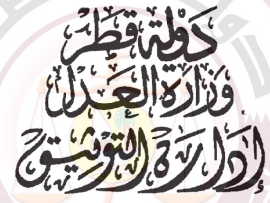 دَوْلَة قَطَر
وَزَارَة العَدْل
إدَارَة التوثيق